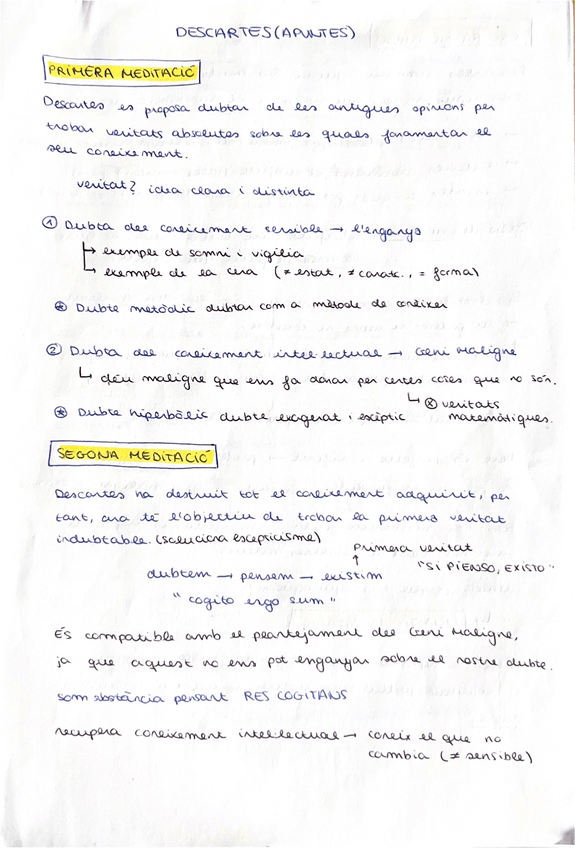 DESCARTES (APUNTES)
PRIMERA MEDITACIÓ
Descartes es proposa dubtar de les antigues opinions per
trobar veritats absolutes sobre les quals fonamentar el
seu coneixement.
veritat? idea clara i distinta
① Dubta del coneixement sensible → l'engany
↳ exemple de somni i vigília
↳ exemple de la cera (≠ estat, ≠ caract., = forma)
⊛ Dubte metòdic dubtar com a mètode de conèixer
② Dubta del coneixement intel·lectual → Geni Maligne
↳ déu maligne que ens fa donar per certes coses que no són.
↳ ⊗ veritats
matemàtiques.
⊛ Dubte hiperbòlic dubte exagerat i escèptic
SEGONA MEDITACIÓ
Descartes ha destruit tot el coneixement adquirit, per
tant, ara té l'objectiu de trobar la primera veritat
indubtable. (soluciona escepticisme)
Primera veritat
↑
"SI PIENSO, EXISTO"
dubtem → pensem → existim
"cogito ergo sum"
És compatible amb el plantejament del Geni Maligne,
ja que aquest no ens pot enganyar sobre el nostre dubte.
som substància pensant RES COGITANS
recupera coneixement intel·lectual → coneix el que no
cambia (≠ sensible)